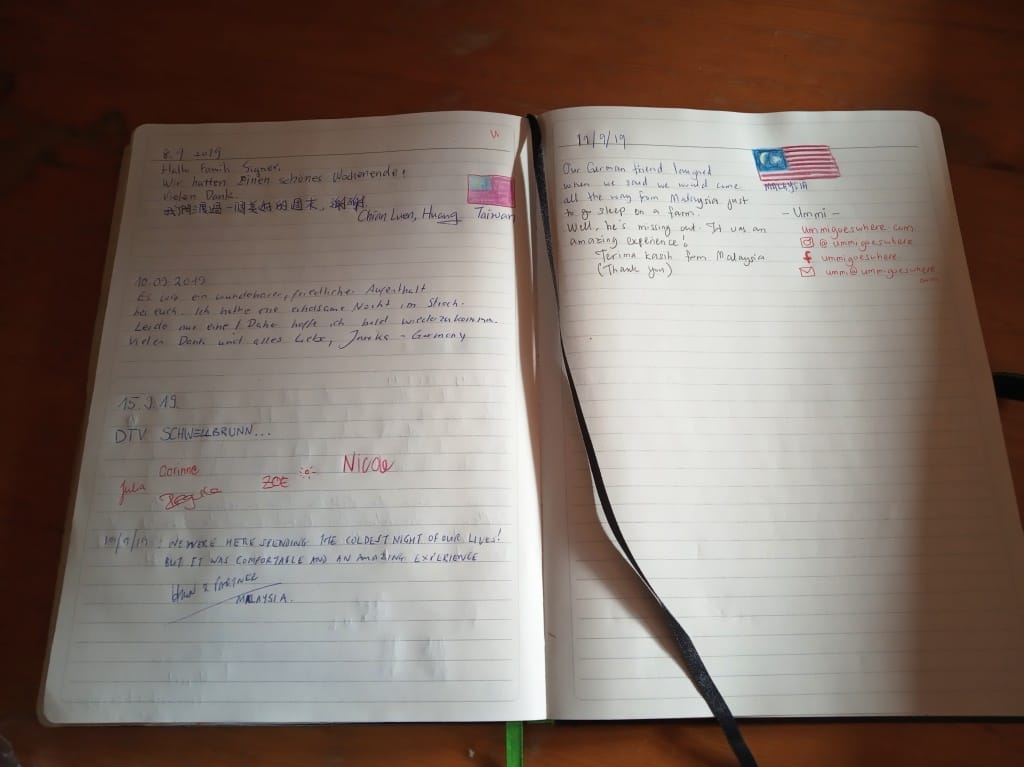 8.9 2019
Hallo Familie Signer.
Wir hatten Einen schönes Wochenende!
Vielen Dank.
我們渡過一個美好的週末, 謝謝!
Chian Luen, Huang Taiwan
10.09.2019
Es war ein wunderbarer, friedlicher Aufenthalt
bei euch. Ich hatte eine erholsame Nacht im Stroh.
Leider nur eine! Daher hoffe ich bald wiederzukommen.
Vielen Dank und alles Liebe, - Germany
15.9.19
DTV SCHWELLBRUNN...
Corinne
Julia
ZOE
Nicole
/9/19 : WE WERE HERE SPENDING THE COLDEST NIGHT OF OUR LIVES!
BUT IT WAS COMFORTABLE AND AN AMAZING EXPERIENCE
& PARTNER
MALAYSIA.
19/9/19
Our German friend laughed
when we said we would come
all the way from Malaysia just
to go sleep on a farm.
Well, he's missing out. It was an
amazing experience!
Terima kasih from Malaysia
(Thank you)
MALAYSIA
- Ummi -
ummigoeswhere.com
@ummigoeswhere
ummigoeswhere
ummi@ummigoeswhere
.com